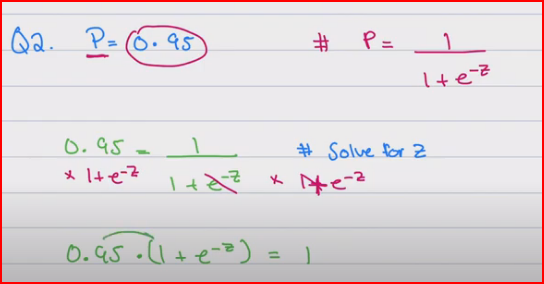 Q2. P = 0.95 # P = 1 / 1 + e^-z
0.95 = 1 / 1 + e^-z # Solve for z
x 1 + e^-z x 1 + e^-z
0.95 · (1 + e^-z) = 1